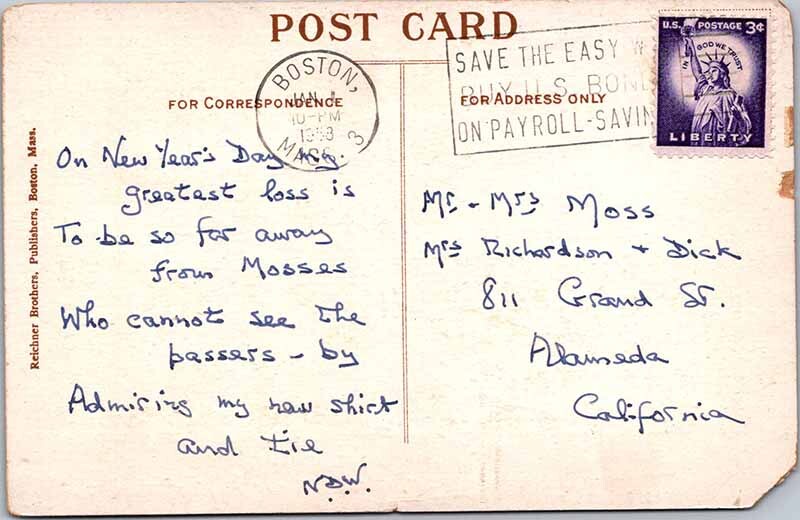 POST CARD
FOR CORRESPONDENCE
FOR ADDRESS ONLY
Reichner Brothers, Publishers, Boston, Mass.
BOSTON,
JAN 1
10-PM
1958
MASS. 3
SAVE THE EASY W
BUY U.S. BON
ON PAYROLL-SAVIN
U.S. POSTAGE 3¢
IN GOD WE TRUST
LIBERTY
On New Year's Day my
greatest loss is
To be so far away
from Mosses
Who cannot see the
passers-by
Admiring my new shirt
and tie
N.D.W.
Mr - Mrs Moss
Mrs Richardson + Dick
811 Grand St.
Alameda
California